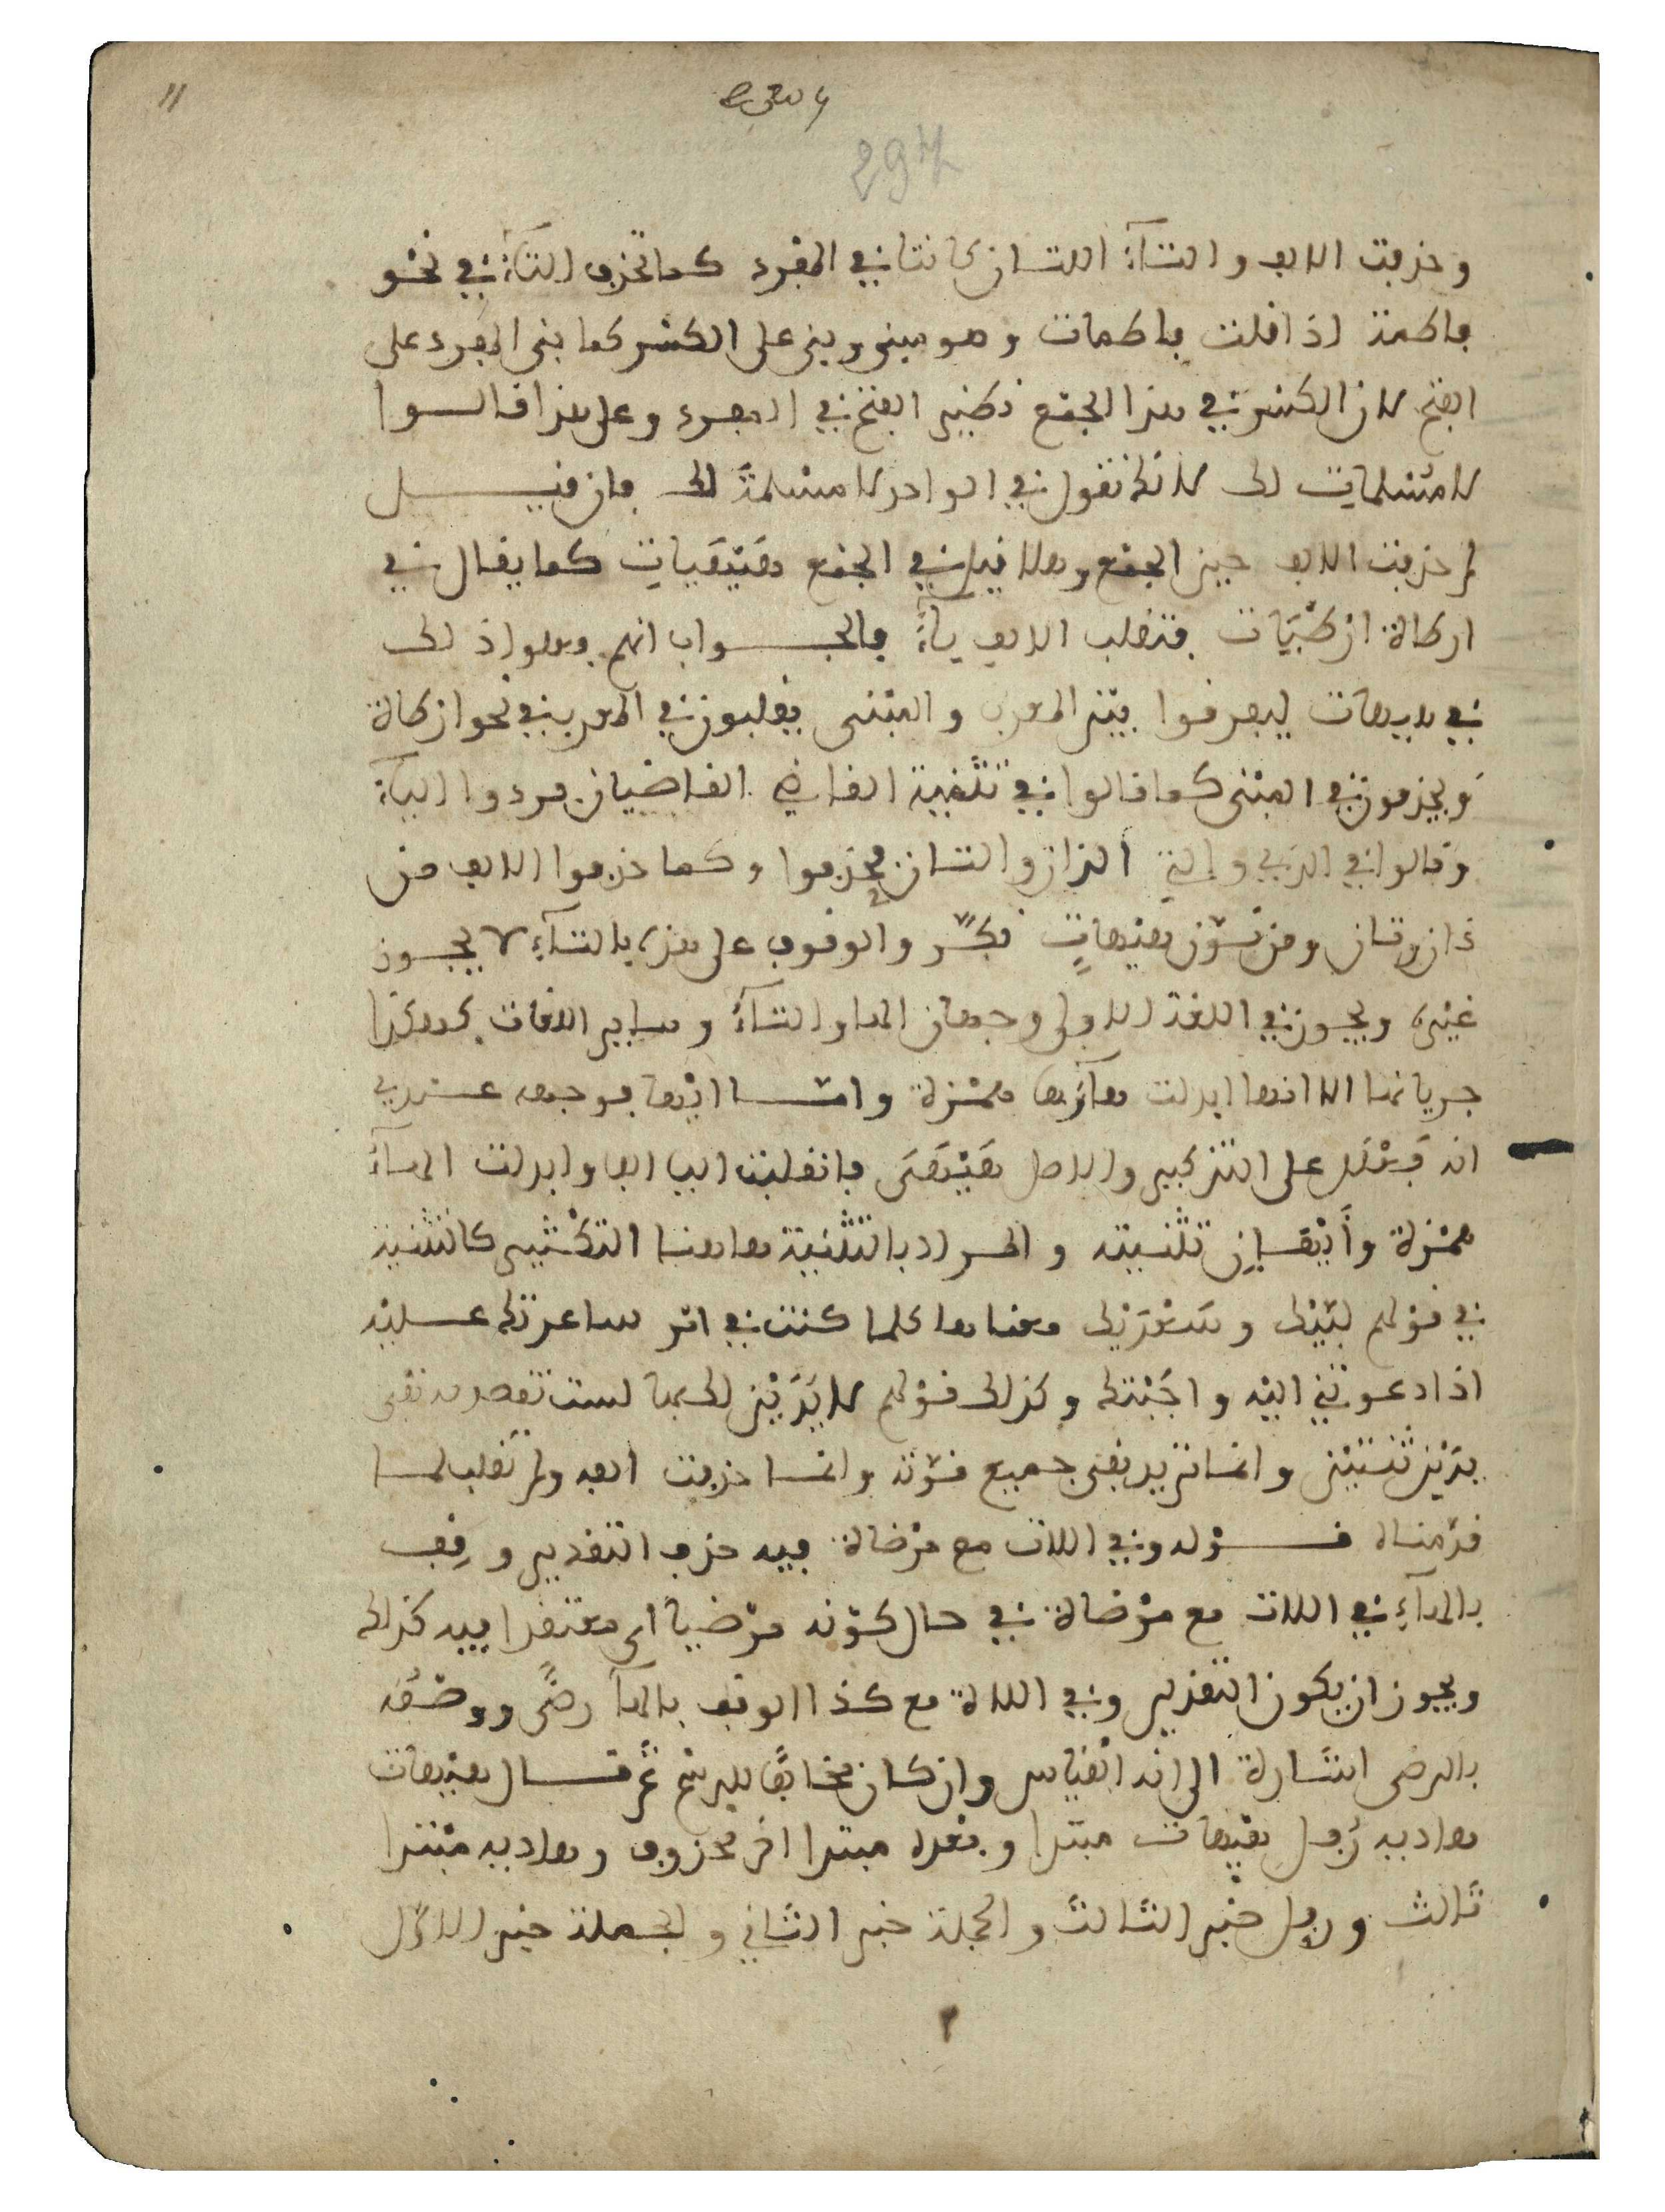 11
297
وحذفت الالف والتآء اللتان كانتا في المفرد كما تحذف التآء في نحو
فاطمة اذا قلت فاطمات وهو مبني وبني على الكسر كما بني المفرد على
الفتح لان الكسر في هذا الجمع نظير الفتح في المفرد وعلى هذا قالوا
لا مسلمات لك لانك تقول في الواحد لا مسلمة لك فان قيل
لم حذفت الالف حين الجمع وهلا قيل في الجمع هَيْهَيات كما يقال في
ارطاة ارطيات فتقلب الالف يآء فالجواب انهم فعلوا ذلك
في هيهات ليفرقوا بين المعرب والمبنى فيقلبون في المعرب في نحو ارطاة
ويحذفون في المبنى كما قالوا في تثنية القاضي القاضيان فردوا اليآء
وقالوا في الذي والتي الذان والتان فحذفوا وكما حذفوا الالف من
ذان وتان ومن نوّن هيهاتٍ نكّر والوقوف على هذه بالتآء لا يجوز
غيره ويجوز في اللغة الاولى وجهان الها والتآء وساير اللغات
جريانها الا انها ابدلت هآؤها همزة وامّا ايها فوجهه عندي
انه فَعْلَل على التذكير والاصل هَيْهَى فانقلبت اليا الفا وابدلت الهآء
همزة وأيْهان تثنيته والمراد بالتثنية هاهنا التكثير كالتثنية
في قولهم لبّيْك وسَعْدَيْك معناها كلما كنت في امر ساعدتك عليه
اذا دعوتني اليه واجبتك وكذلك قولهم لا يَدَيْن لك بها لست تقصد به نفى
يديْن ثنتين وانما تريد نفى جميع قوّته وانما حذفت الفه ولم تقلب لما
قدّمناه قوله وفي اللات مع مرضاة فيه حذف التقدير وقِف
بالهآء في اللات مع مرضاة في حال كونه مرضيا اى معتقدا فيه كذلك
ويجوز ان يكون التقدير وفي اللاة مع كذا الوقف بالهآ رضًى ووصفه
بالرضى اشارة الى انه القياس وان كان مخالفا للرسم ثم قال هيهات
هاديه رُفل هيهات مبتدا وبعده مبتدا اخر محذوف وهاديه مبتدا
ثالث ورفل خبر الثالث والجملة خبر الثاني والجملة خبر الاوّل